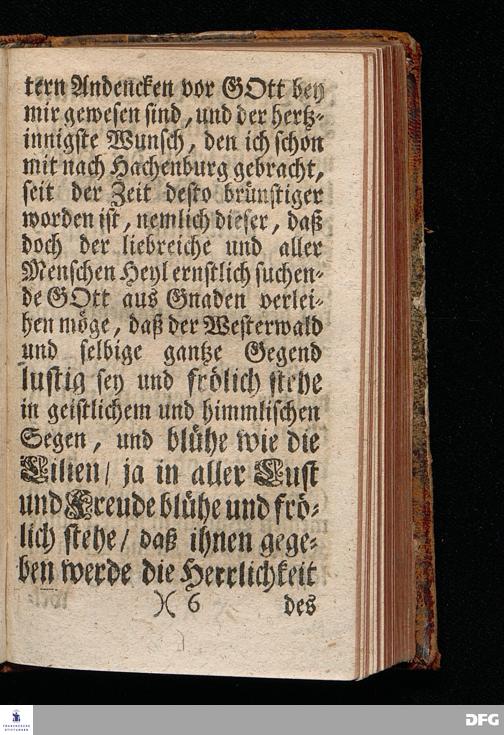 tern Andencken vor GOtt bey
mir gewesen sind, und der hertz-
innigste Wunsch, den ich schon
mit nach Hachenburg gebracht,
seit der Zeit desto brünstiger
worden ist, nemlich dieser, daß
doch der liebreiche und aller
Menschen Heyl ernstlich suchen-
de GOtt aus Gnaden verlei-
hen möge, daß der Westerwald
und selbige gantze Gegend
lustig sey und frölich stehe
in geistlichem und himmlischen
Segen, und blühe wie die
Lilien/ ja in aller Lust
und Freude blühe und frö-
lich stehe/ daß ihnen gege-
ben werde die Herrlichkeit
)( 6 des
FRANCKESCHE
STIFTUNGEN
DFG